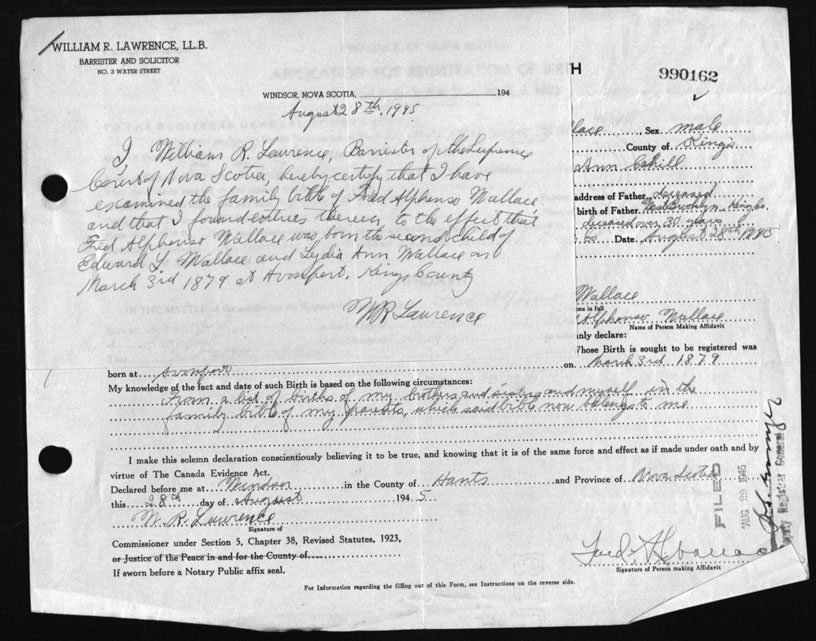 WILLIAM R. LAWRENCE, LL.B.
BARRISTER AND SOLICITOR
NO. 3 WATER STREET
WINDSOR, NOVA SCOTIA, 194
August 28th, 1945
I William R. Lawrence, Barrister of the Supreme
Court of Nova Scotia, hereby certify that I have
examined the family bible of Fred Alphonso Wallace
and that I found entries therein to the effect that
Fred Alphonso Wallace was born the second child of
Edward Y. Wallace and Lydia Ann Wallace on
March 3rd 1879 at Avonport, Kings County
W R Lawrence
H
990162
Wallace, Sex male
County of Kings
Ann Cahill
address of Father deceased
birth of Father Brooklyn, Kings Co.
deceased over 30 years
Date August 28th 1945
Wallace
me in full
Alphonso Wallace
Name of Person Making Affidavit
nly declare:
Whose Birth is sought to be registered was
born at Avonport on March 3rd 1879
My knowledge of the fact and date of such Birth is based on the following circumstances:
From a list of births of my brothers and sisters and myself in the
family bible of my parents, which said bible now belongs to me
I make this solemn declaration conscientiously believing it to be true, and knowing that it is of the same force and effect as if made under oath and by
virtue of The Canada Evidence Act.
Declared before me at Windsor in the County of Hants and Province of Nova Scotia
this 28th day of August 1945
W. R. Lawrence
Signature of
Commissioner under Section 5, Chapter 38, Revised Statutes, 1923,
or Justice of the Peace in and for the County of
If sworn before a Notary Public affix seal.
Signature of Person making Affidavit
For Information regarding the filling out of this Form, see Instructions on the reverse side.
FILED
AUG 29 1945
Deputy Registrar General